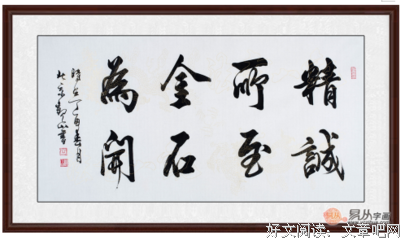 精誠
所至
金石
為開
時在丁酉春月
北京
易从字画
好文阅读:文章吧网